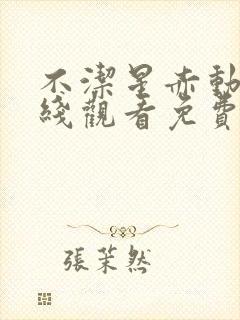 不潔星赤動
綫觀看免費
張茉然